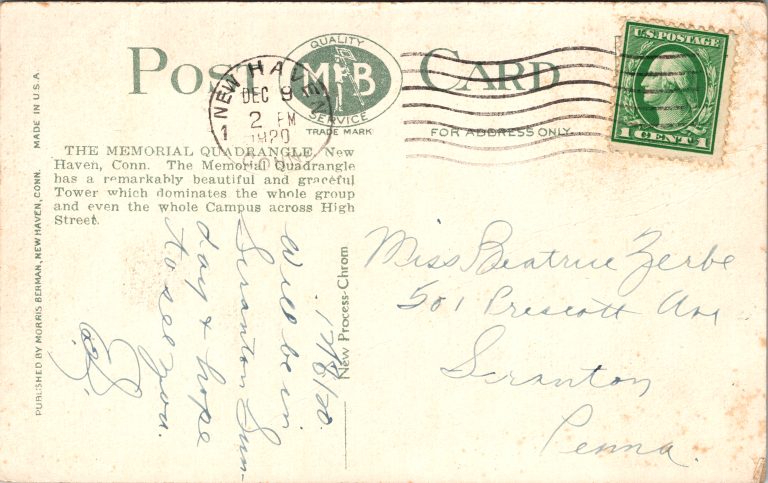 POST CARD
QUALITY
MB
SERVICE
TRADE MARK
FOR ADDRESS ONLY.
NEW HAVEN
DEC 9
2 PM
1920
CONN.
1
U.S. POSTAGE
1 CENT 1
THE MEMORIAL QUADRANGLE, New
Haven, Conn. The Memorial Quadrangle
has a remarkably beautiful and graceful
Tower which dominates the whole group
and even the whole Campus across High
Street.
PUBLISHED BY MORRIS BERMAN, NEW HAVEN, CONN. MADE IN U.S.A.
New Process-Chrom
Will be in
Scranton Sun-
day & hope
to see you.
Miss Beatrice Zerbe
501 Prescott Ave
Scranton
Penna.